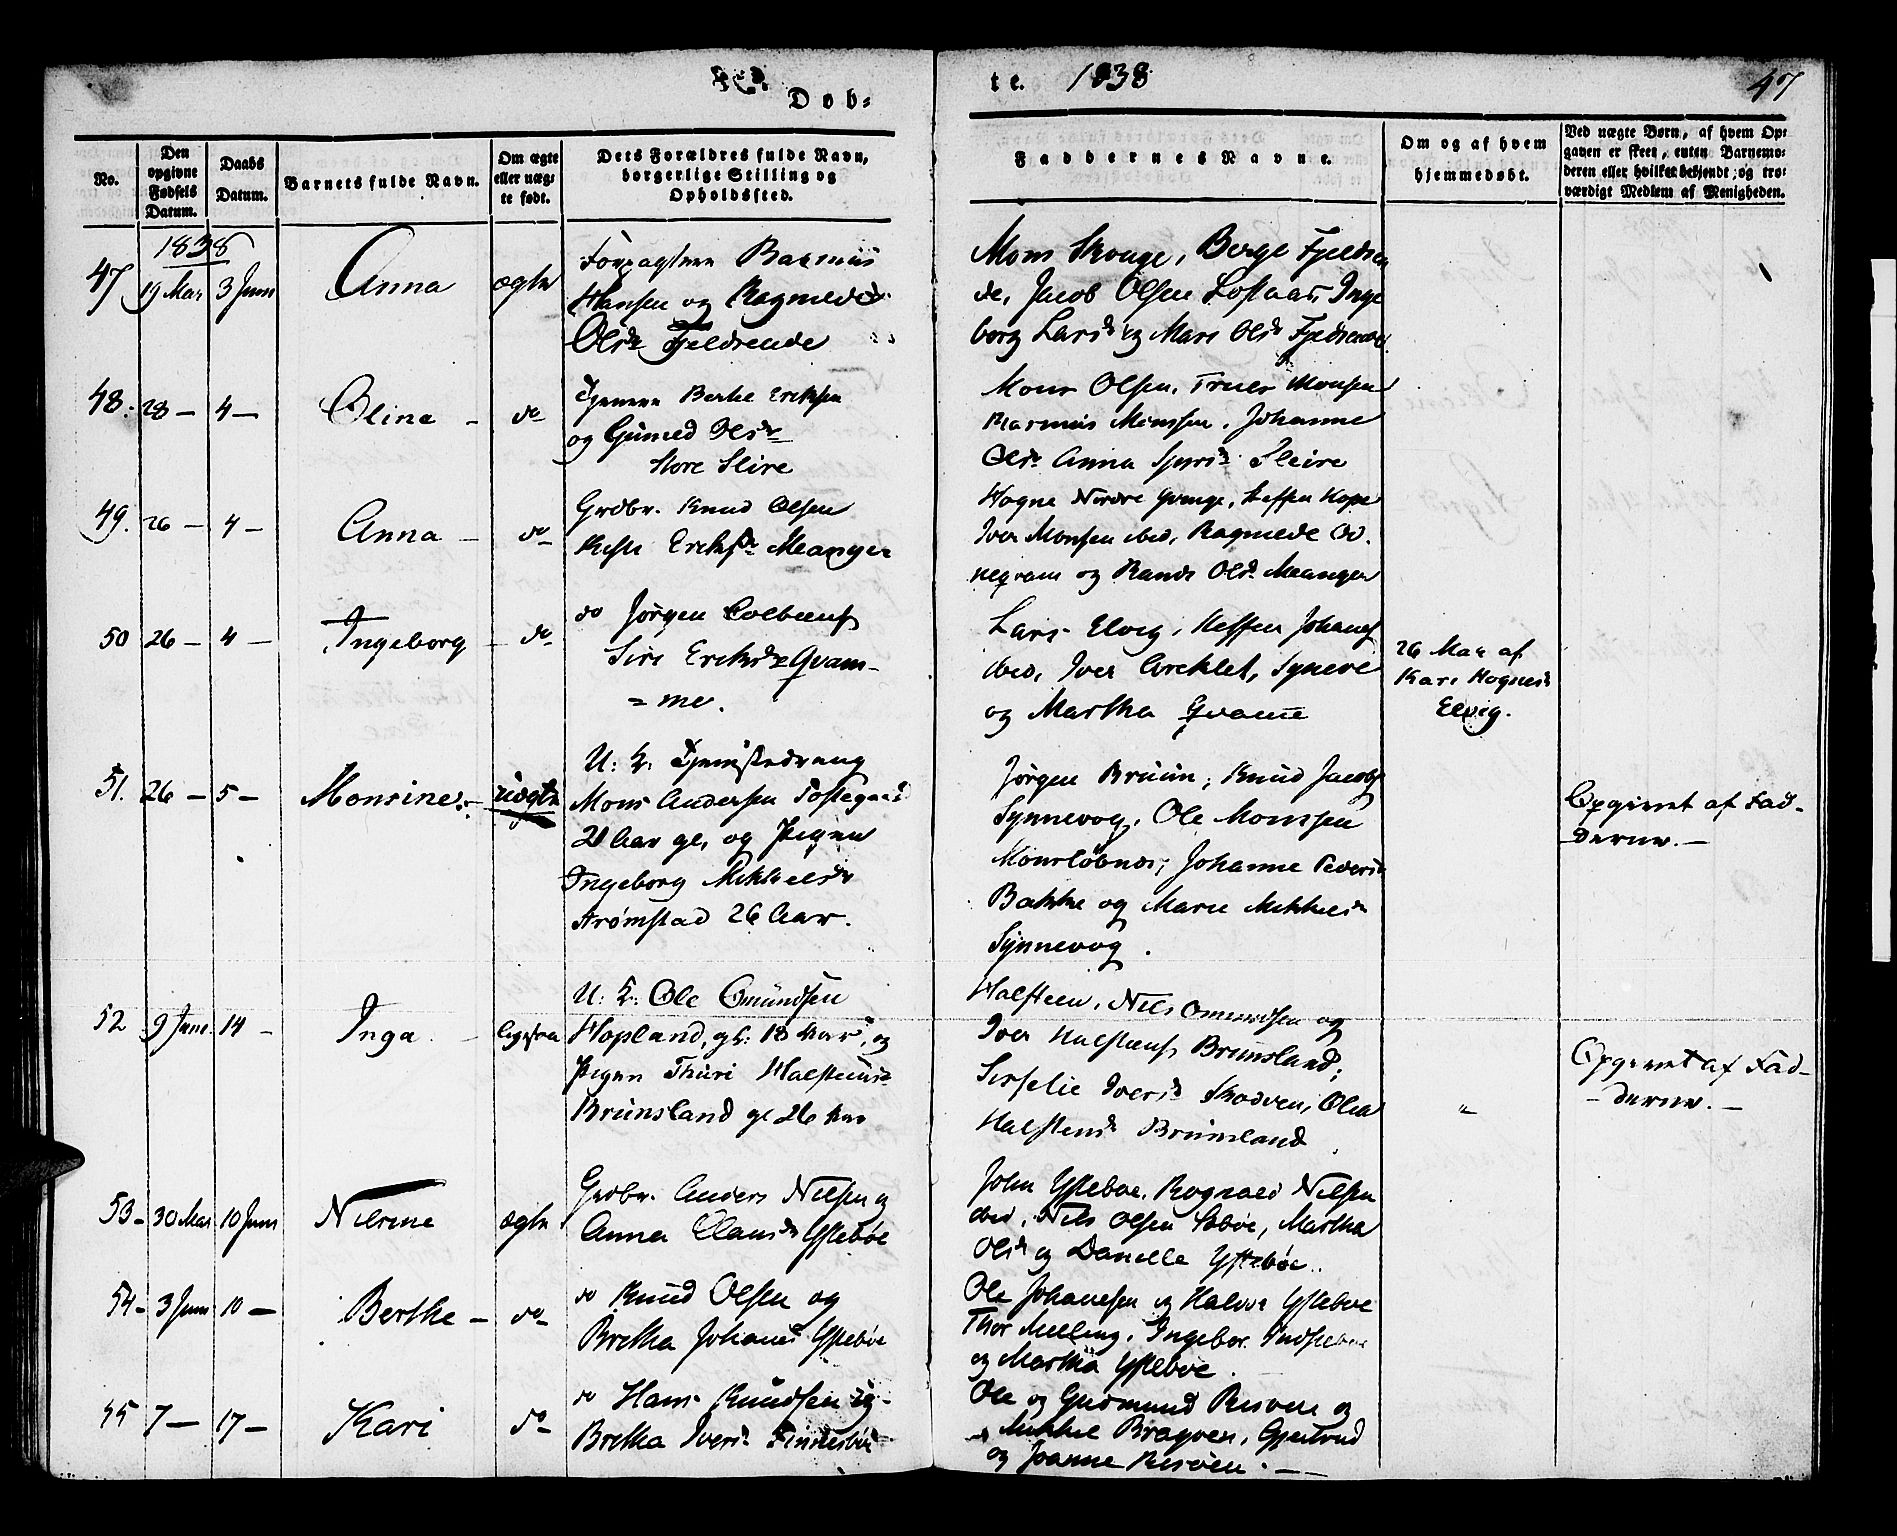 Døb-
te. 1838
47
No.
Den opgivne Fødsels Datum.
Daabs Datum.
Barnets fulde Navn.
Om ægte eller uægte født.
Dets Forældres fulde Navn, borgerlige Stilling og Opholdssted.
Faddernes Navne.
Om og af hvem hjemmedøbt.
Ved uægte Børn, af hvem Opgaven er skeet, enten Barnemoderen eller hvilket bekjendt, og troværdigt Medlem af Menigheden.
1838
47 19 Mai 3 Juni Anna ægte
Forpagtere Rasmus
Hansen og Ragnilde
Olsdr Fjeldsende
Mons Skouge, Berge Fjeldsen
de, Jacob Olsen Lostaas, Inge
borg Larsdr og Mari Olsdr Fjeldsende
48. 28 - 4 - Oline - do
Tjenere Berke Eriksen
og Gunild Olsdr
Store Slire
Mons Olsen, Truls Monsen
Rasmus Monsen, Johanne
Olsdr Anna Sjursdr Sleire
49. 26 - 4 - Anna - do
Grdbr. Knud Olsen
Kisti Eriksdr Meanger
Hogne Nordre Qvinge, Steffen Hope
Iver Monsen ibid, Ragnilde
og Randi Olsdr Meanger
50 26 - 4 - Ingeborg - do
do Jørgen Colbeens
Siri Eriksdr Qvam-
= me.
Lars Elvig, Steffen Johans
ibid, Iver, Syneve
og Martha Qvamme
26 Mai af
Kari Hognesdr
Elvig.
51. 26 - 5 - Monsine - uægte
U: F: Tjenistedreng
Mons Andersen Tostegaard
21 Aar gl, og Pigen
Ingeborg Mikkelsdr
Strømstad 26 Aar.
Jørgen Bruun, Knud Jacobs
Synnevog, Ole Monsen
Monsløbnes, Johanne Pedersdr
Bakke og Marie Mikkelsdr
Synnevog.
Opgivet af Fad-
derne. -
52 9 Juni 14 - Inga - ligesaa
U: F: Ole Omundsen
Hopland, gl: 18 Aar, og
Pigen Thuri Halsteinsdr
Brunsland gl 26 Aar
Halsteen, Nils Omundsen og
Iver Halsteens Brunsland,
Sisselie Iversdr Skodven, Olea
Halstensdr Brunsland
"
Opgivet af Fad-
- derne. -
53 - 30 Mai 10 Juni Nilsine ægte
Grdbr. Anders Nilsen og
Anna Clausdr Ystebøe
John Ystebøe, Rognald Nilsen
ibid, Nils Olsen Sebøe, Martha
Olsdr og Danelle Ystebøe.
54 - 3 Juni 10 - Berthe - do
do Knud Olsen og
Bretha Johansdr Ystebøe
Ole Johanesen og Halvor Ystebøe
Thor Melling, Ingebor Indstebøe
og Martha Ystebøe.
55 7 - 17 - Kari do
do Hans Knudsen og
Bretha Iversdr Tindesbøe
Ole og Gudmund Risøen og
Mikkel Bragøen, Gjertrud
og Joanne Risøen. -